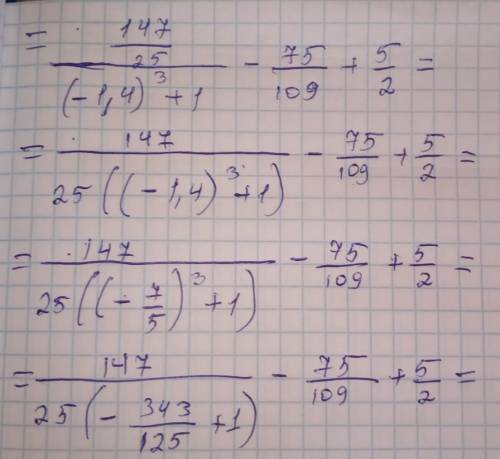 = (147/25)/((-1,4)^3+1) - 75/109 + 5/2 =
= 147/(25((-1,4)^3+1)) - 75/109 + 5/2 =
= 147/(25((-7/5)^3+1)) - 75/109 + 5/2 =
= 147/(25(-343/125+1)) - 75/109 + 5/2 =